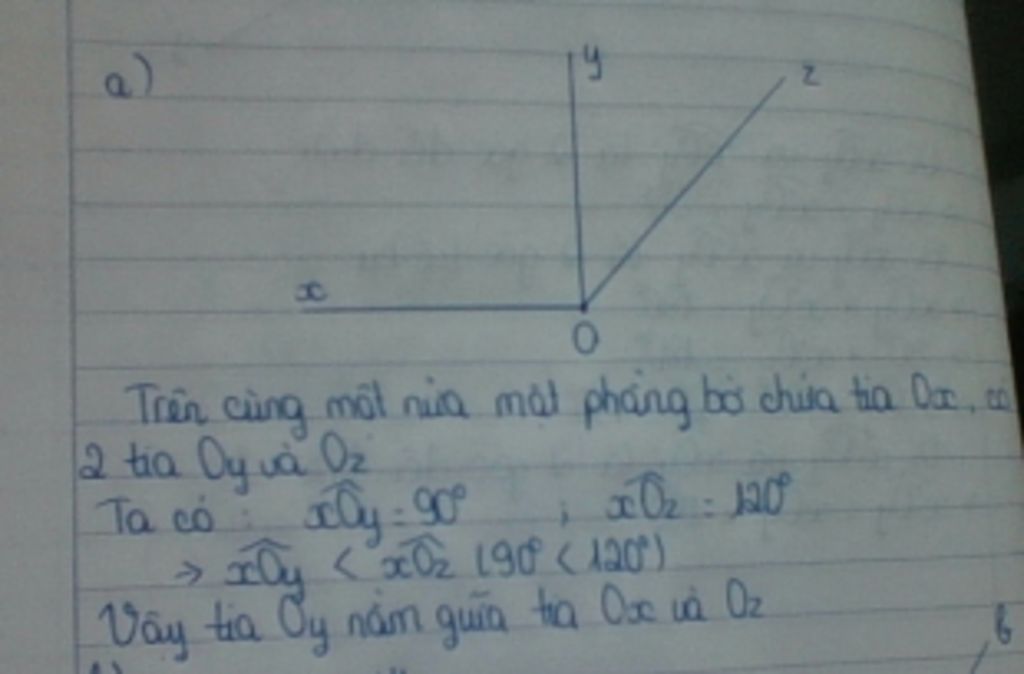 a)
y
z
x
O
Trên cùng một nửa mặt phẳng bờ chứa tia Ox, có
2 tia Oy và Oz
Ta có : xOy = 90° ; xOz = 120°
→ xOy < xOz (90° < 120°)
Vậy tia Oy nằm giữa tia Ox và Oz